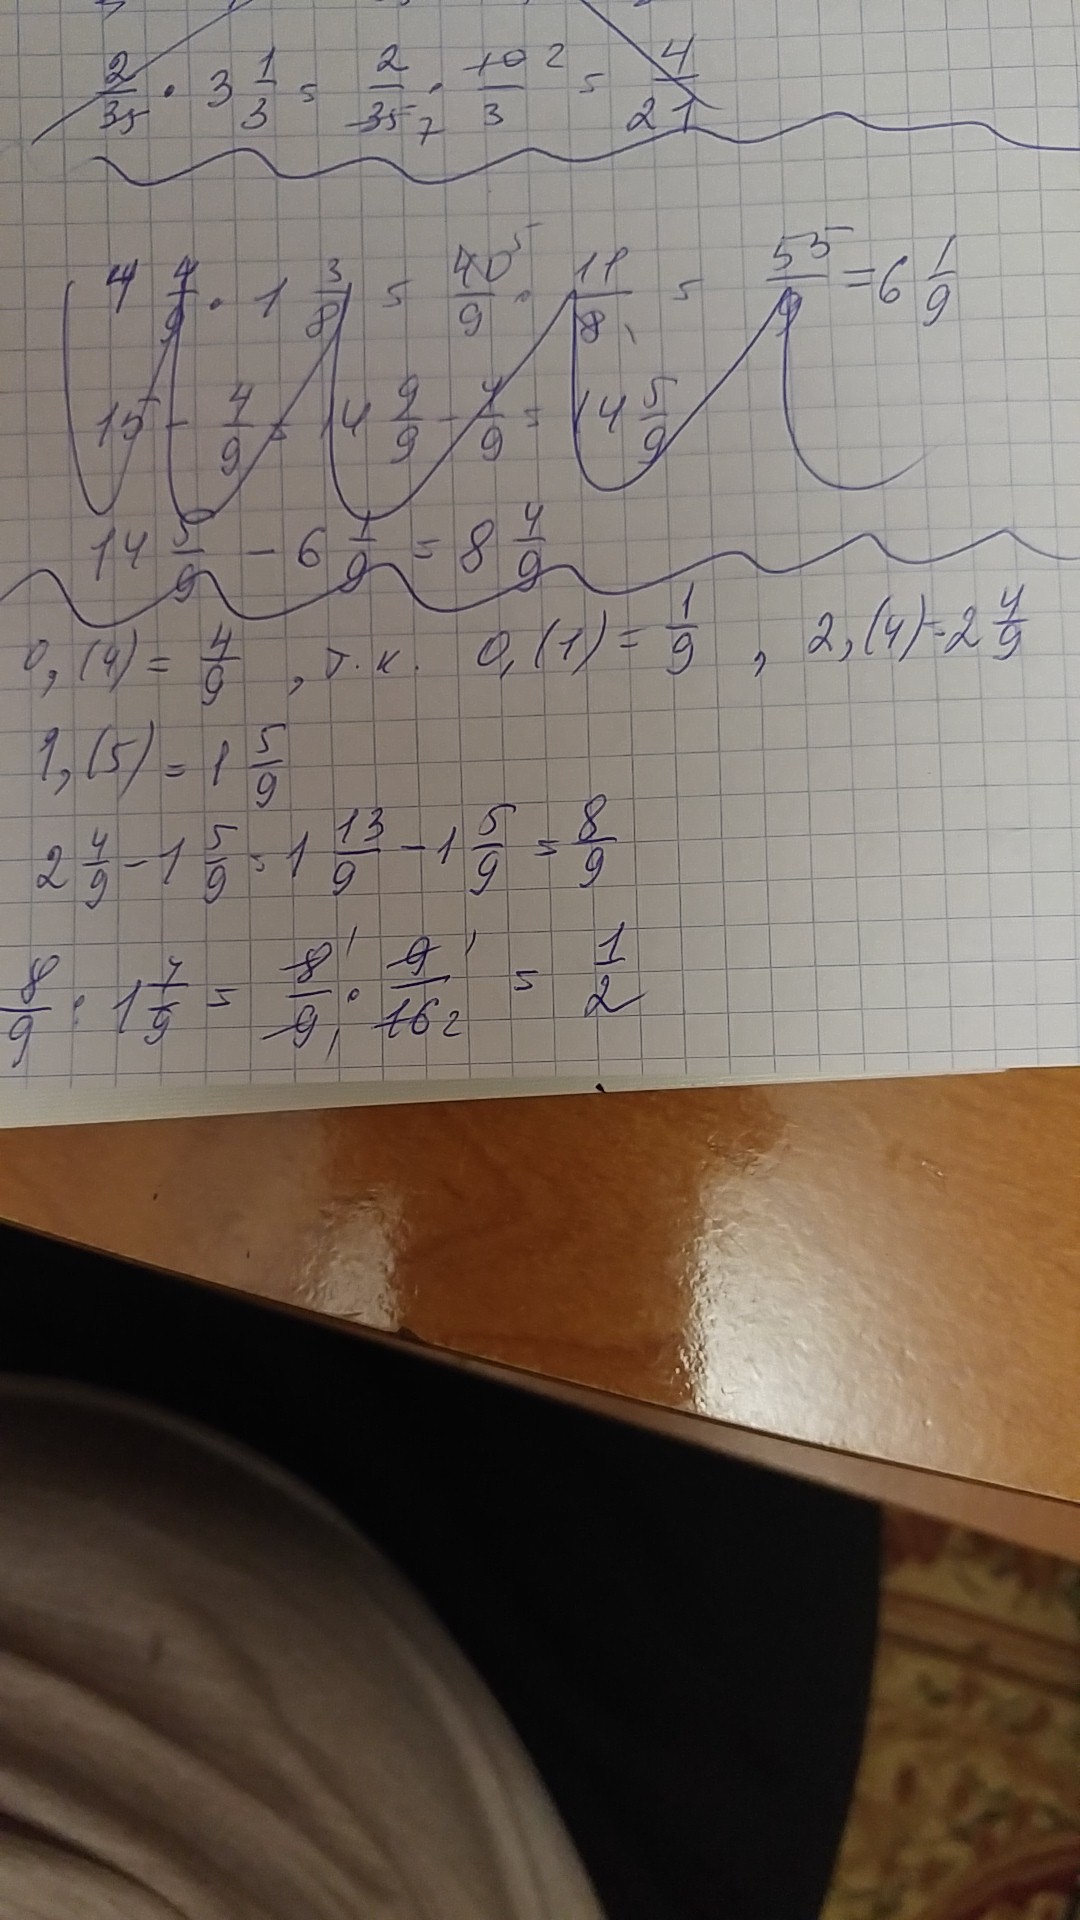 2/35 · 3 1/3 = 2/35 7 · 10 2/3 = 4/21
4 4/9 · 1 3/8 = 40 5/9 · 11/8 1 = 55/9 = 6 1/9
15 - 4/9 = 14 9/9 - 4/9 = 14 5/9
14 5/9 - 6 1/9 = 8 4/9
0,(4) = 4/9, т.к. 0,(1) = 1/9, 2,(4) = 2 4/9
1,(5) = 1 5/9
2 4/9 - 1 5/9 = 1 13/9 - 1 5/9 = 8/9
8/9 : 1 7/9 = 8 1/9 1 · 9 1/16 2 = 1/2